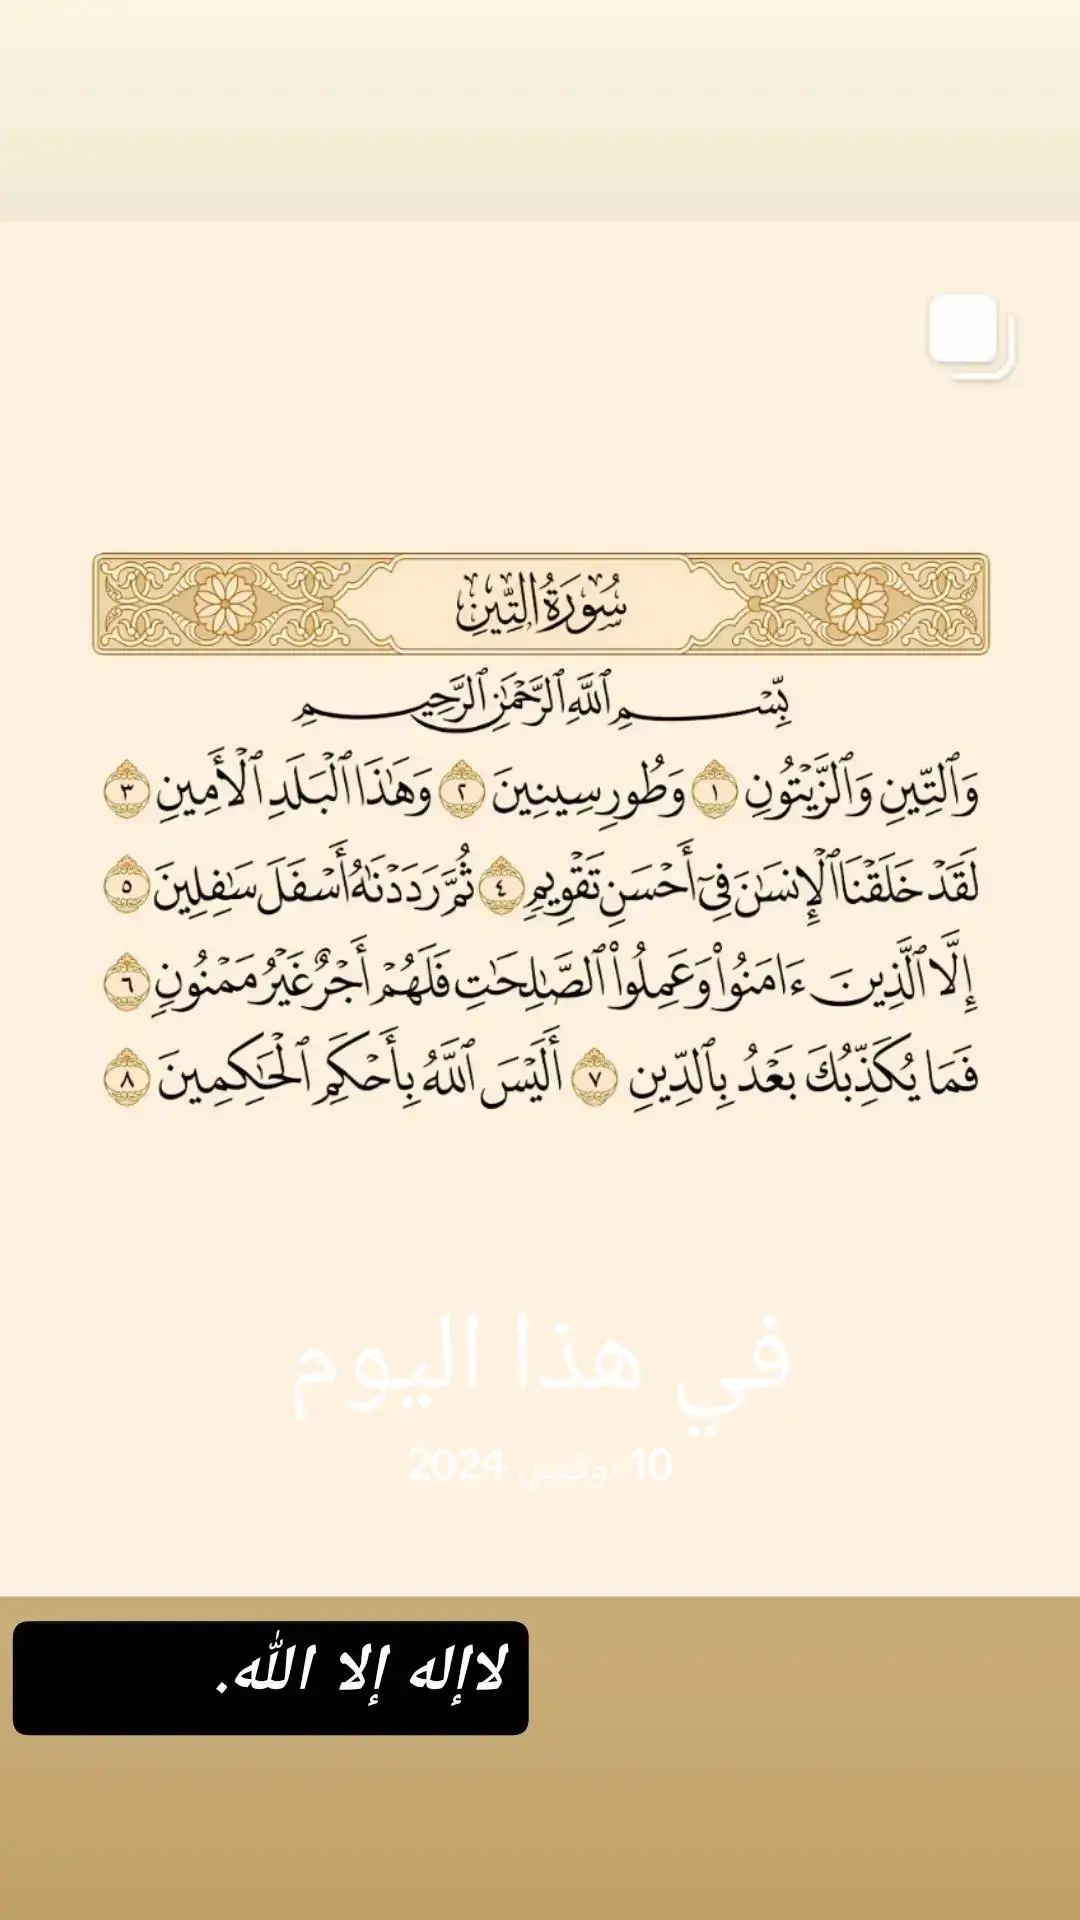 سُورَةُ التِّينِ
بِّسۡمِ ٱللَّهِ ٱلرَّحۡمَٰنِ ٱلرَّحِيمِ
وَٱلتِّينِ وَٱلزَّيۡتُونِ ١ وَطُورِ سِينِينَ ٢ وَهَٰذَا ٱلۡبَلَدِ ٱلۡأَمِينِ ٣
لَقَدۡ خَلَقۡنَا ٱلۡإِنسَٰنَ فِيٓ أَحۡسَنِ تَقۡوِيمٖ ٤ ثُمَّ رَدَدۡنَٰهُ أَسۡفَلَ سَٰفِلِينَ ٥
إِلَّا ٱلَّذِينَ ءَامَنُواْ وَعَمِلُواْ ٱلصَّٰلِحَٰتِ فَلَهُمۡ أَجۡرٌ غَيۡرُ مَمۡنُونٖ ٦
فَمَا يُكَذِّبُكَ بَعۡدُ بِٱلدِّينِ ٧ أَلَيۡسَ ٱللَّهُ بِأَحۡكَمِ ٱلۡحَٰكِمِينَ ٨
في هذا اليوم
10 نوفمبر 2024
لاإله إلا الله.